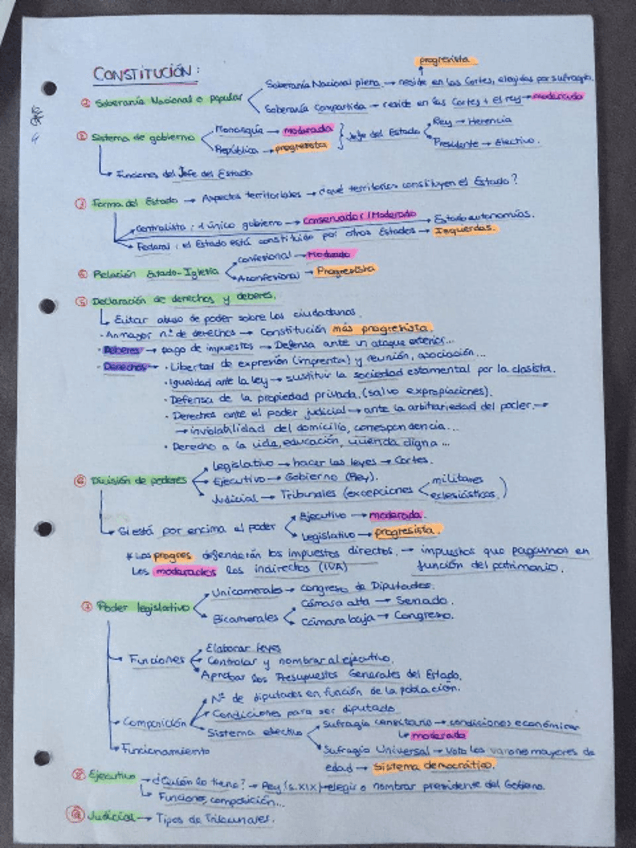 progresista
CONSTITUCIÓN:
Soberanía Nacional plena → reside en las Cortes, elegidas por sufragio.
① Soberanía Nacional o popular
Soberanía Compartida → reside en las Cortes + el rey → moderada
② Sistema de gobierno
Monarquía → moderada
República → progresista
Jefe del Estado
Rey → Herencia
Presidente → Electivo.
Funciones del Jefe del Estado
③ Forma del Estado → Aspectos territoriales → ¿qué territorios constituyen el Estado?
Centralista: único gobierno → conservador/Moderado → Estado autonomías.
Federal: el Estado está constituido por otros Estados → Izquierdas.
④ Relación Estado-Iglesia
Confesional → Moderado
Aconfesional → Progresista
⑤ Declaración de derechos y deberes.
Evitar abuso de poder sobre los ciudadanos.
· A mayor nº de derechos → Constitución más progresista.
· Deberes → pago de impuestos → Defensa ante un ataque exterior...
· Derechos → · Libertad de expresión (imprenta) y reunión, asociación...
· Igualdad ante la ley → sustituir la sociedad estamental por la clasista.
· Defensa de la propiedad privada, (salvo expropiaciones).
· Derechos ante el poder judicial → ante la arbitrariedad del poder →
→ inviolabilidad del domicilio, correspondencia...
· Derecho a la vida, educación, vivienda digna...
⑥ División de poderes
Legislativo → hacer las leyes → Cortes.
Ejecutivo → Gobierno (Rey).
Judicial → Tribunales (excepciones militares eclesiásticos)
Si está por encima el poder
Ejecutivo → moderada.
Legislativo → progresista.
* Los progres defenderán los impuestos directos. → impuestos que pagamos en
Los moderados los indirectos (IVA) función del patrimonio.
⑦ Poder legislativo
Unicamerales → Congreso de Diputados.
Bicamerales
Cámara alta → Senado.
Cámara baja → Congreso.
Funciones
Elaborar leyes
Controlar y nombrar al ejecutivo.
Aprobar los Presupuestos Generales del Estado.
Composición
Nº de diputados en función de la población.
Condiciones para ser diputado
Sistema electivo
Sufragio censitario → condiciones económicas
moderada
Sufragio Universal → Vota los varones mayores de
edad → Sistema democrático.
Funcionamiento
⑧ Ejecutivo → ¿Quién lo tiene? → Rey (s.XIX) → elegir o nombrar presidente del Gobierno.
Funciones, composición...
Judicial → Tipos de Tribunales.